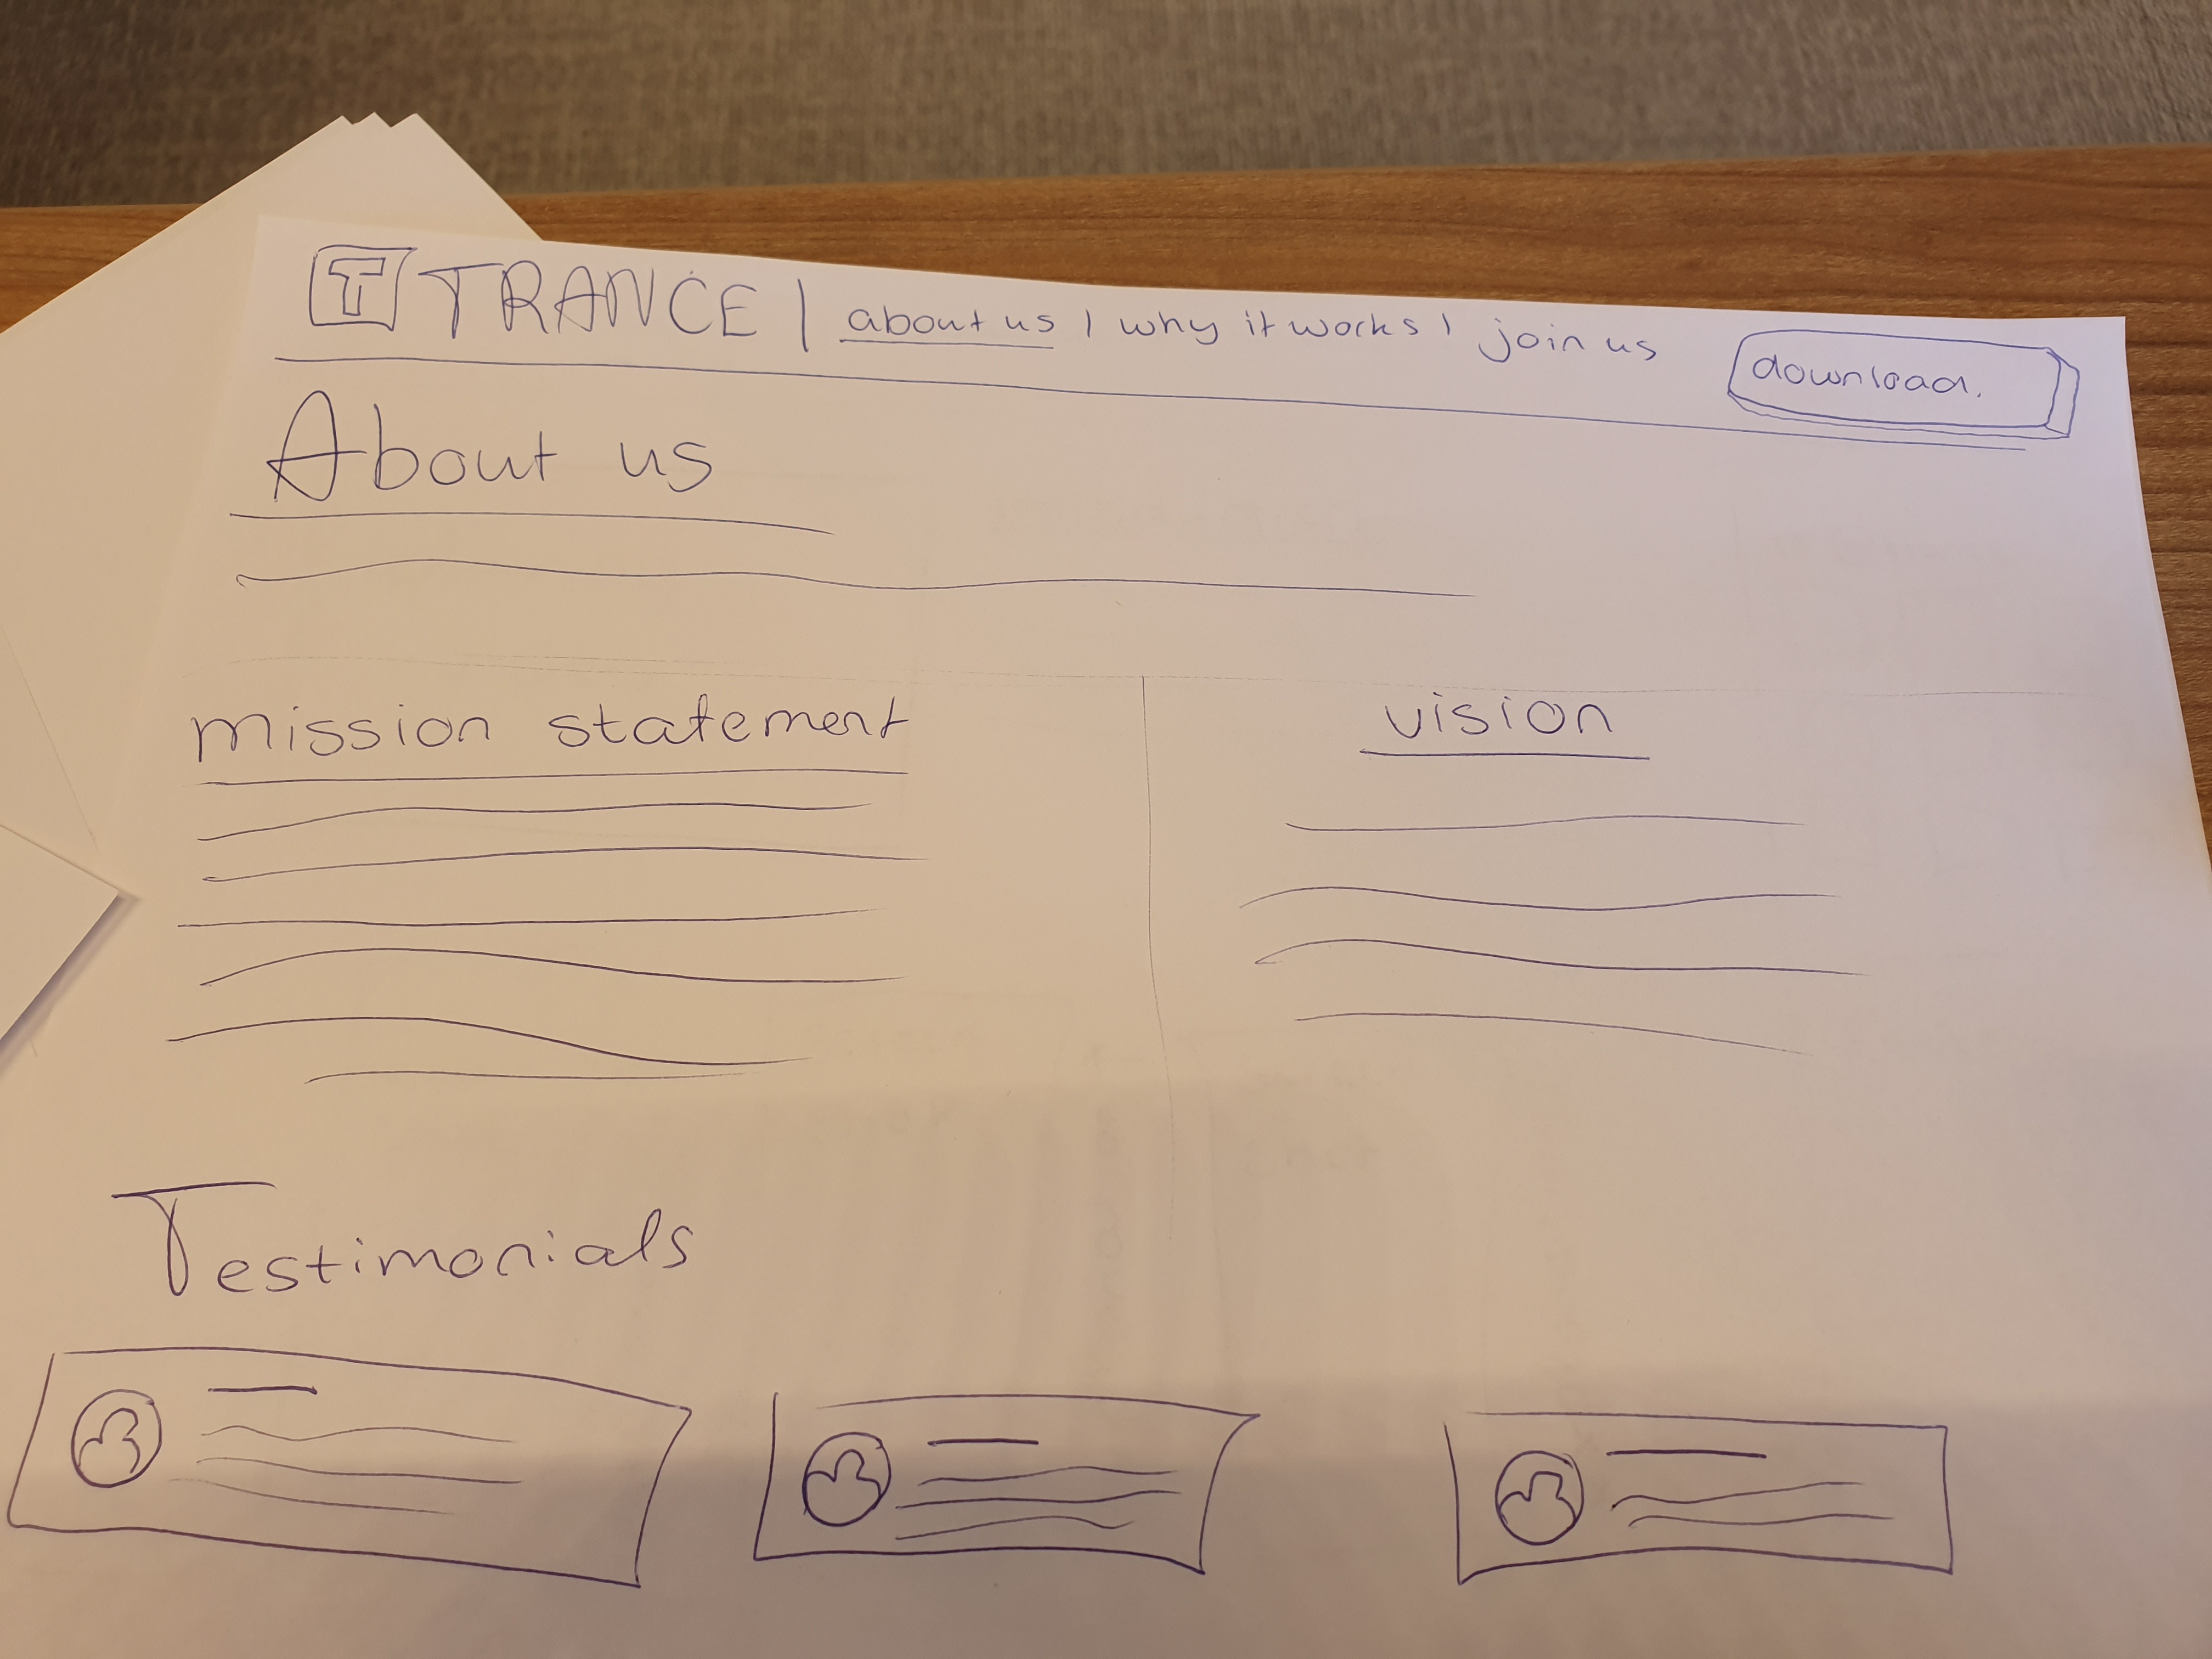 T TRANCE | about us | why it works | join us download.
About us
Mission statement
vision
Testimonials